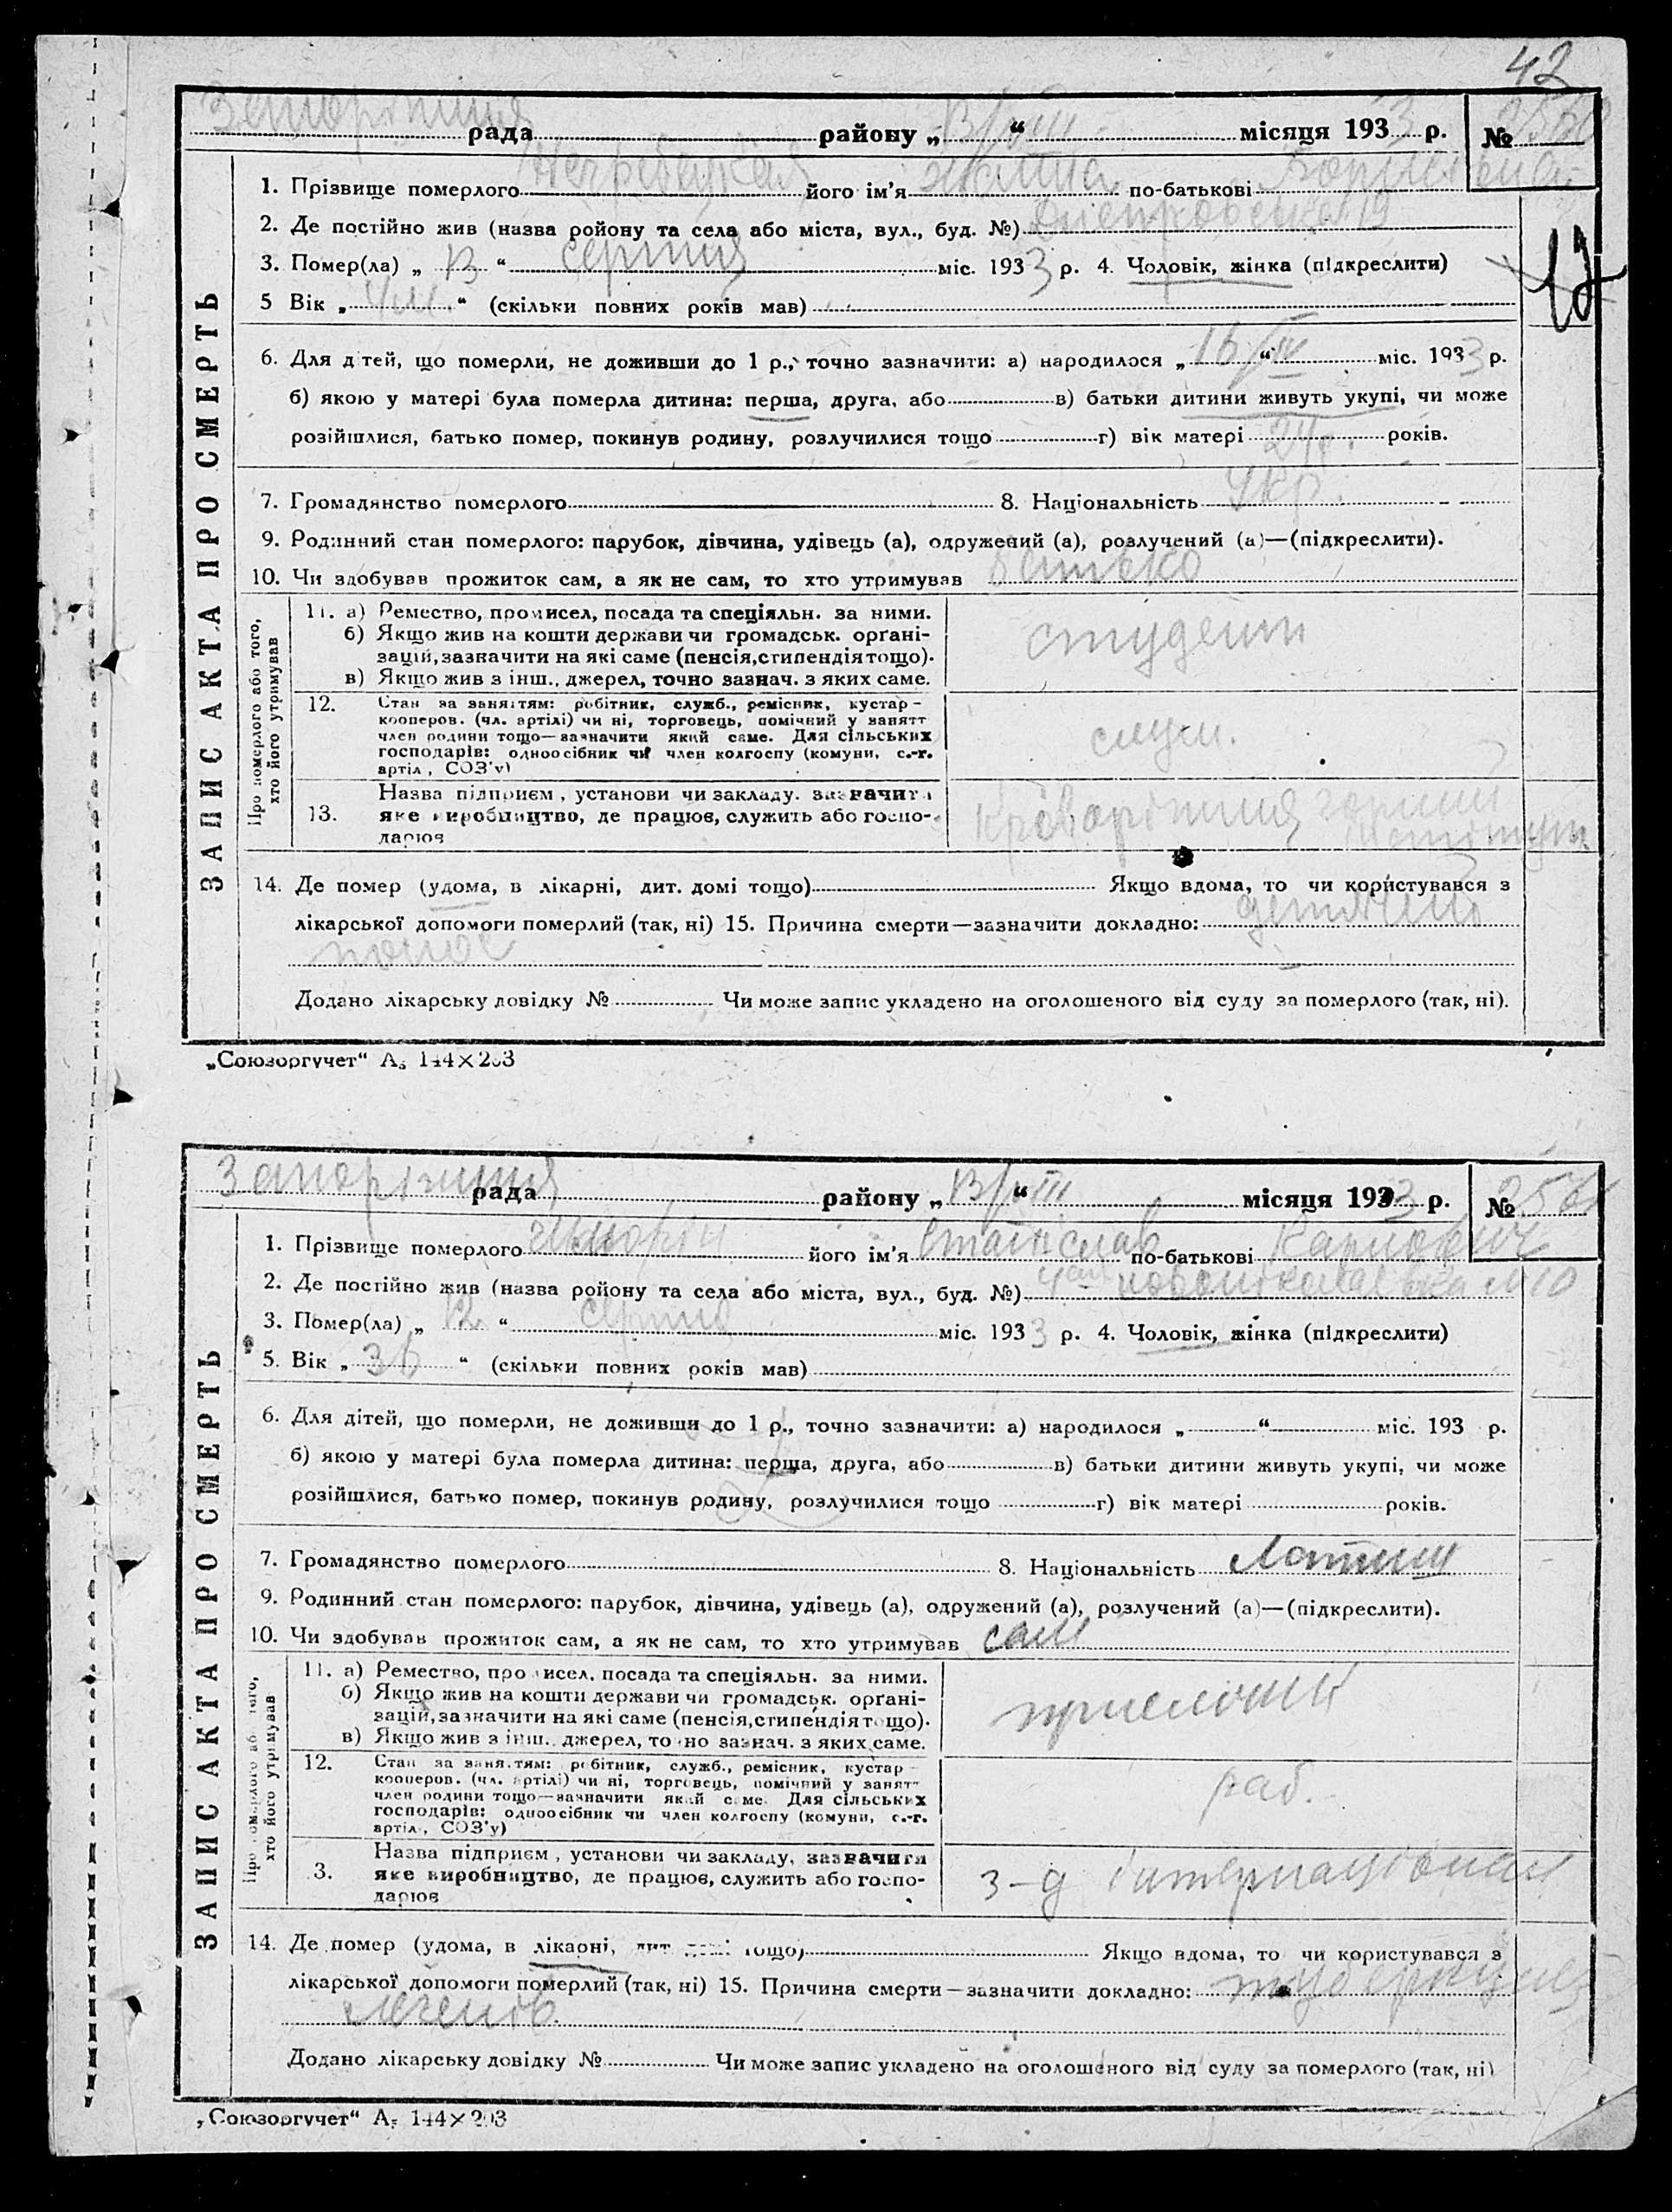 42
Запоріжжя рада району „13/VIII“ місяця 1933 р. №
1. Прізвище померлого його ім'я по-батькові
2. Де постійно жив (назва ройону та села або міста, вул., буд. №) 19
3. Помер(ла) „13“ серпня міс. 1933 р. 4. Чоловік, жінка (підкреслити)
5 Вік „4 м.“ (скільки повних років мав)
12
6. Для дітей, що померли, не доживши до 1 р., точно зазначити: а) народилося „16/IV“ міс. 1933 р.
б) якою у матері була померла дитина: перша, друга, або в) батьки дитини живуть укупі, чи може
розійшлися, батько помер, покинув родину, розлучилися тощо г) вік матері років.
7. Громадянство померлого 8. Національність укр.
9. Родинний стан померлого: парубок, дівчина, удівець (а), одружений (а), розлучений (а)—(підкреслити).
10. Чи здобував прожиток сам, а як не сам, то хто утримував батько
ЗАПИС АКТА ПРО СМЕРТЬ
Про померлого або того,
хто його утримував
11. а) Ремество, промисел, посада та спеціяльн. за ними.
б) Якщо жив на кошти держави чи громадськ. орґані-
зацій, зазначити на які саме (пенсія, стипендія тощо).
в) Якщо жив з інш., джерел, точно зазнач. з яких саме.
студент
12. Стан за заняттям: робітник, служб., ремісник, кустар-
кооперов. (чл. артілі) чи ні, торговець, помічний у занятт
член родини тощо—зазначити який саме. Для сільських
господарів: одноосібник чи член колгоспу (комуни, с.-г.
артіл, СОЗ'у)
служ.
13. Назва підприєм, установи чи закладу. зазначити
яке виробництво, де працює, служить або госпо-
дарює
інститут
14. Де помер (удома, в лікарні, дит. домі тощо) Якщо вдома, то чи користувався з
лікарської допомоги померлий (так, ні) 15. Причина смерти—зазначити докладно:
понос
Додано лікарську довідку № Чи може запис укладено на оголошеного від суду за померлого (так, ні).
„Союзоргучет“ А5 144×203
Запоріжжя рада району „13/VIII“ місяця 1933 р. № 2561
1. Прізвище померлого його ім'я Станіслав по-батькові Карлович
2. Де постійно жив (назва ройону та села або міста, вул., буд. №) №10
3. Помер(ла) „12“ серпня міс. 1933 р. 4. Чоловік, жінка (підкреслити)
5. Вік „36“ (скільки повних років мав)
6. Для дітей, що померли, не доживши до 1 р., точно зазначити: а) народилося „ “ міс. 193 р.
б) якою у матері була померла дитина: перша, друга, або в) батьки дитини живуть укупі, чи може
розійшлися, батько помер, покинув родину, розлучилися тощо г) вік матері років.
7. Громадянство померлого 8. Національність Латиш
9. Родинний стан померлого: парубок, дівчина, удівець (а), одружений (а), розлучений (а)—(підкреслити).
10. Чи здобував прожиток сам, а як не сам, то хто утримував сам
ЗАПИС АКТА ПРО СМЕРТЬ
Про померлого або того,
хто його утримував
11. а) Ремество, промисел, посада та спеціяльн. за ними.
б) Якщо жив на кошти держави чи громадськ. орґані-
зацій, зазначити на які саме (пенсія, стипендія тощо).
в) Якщо жив з інш. джерел, точно зазнач. з яких саме.
12. Стан за заняттям: робітник, служб., ремісник, кустар-
кооперов. (чл. артілі) чи ні, торговець, помічний у занятт
член родини тощо—зазначити який саме. Для сільських
господарів: одноосібник чи член колгоспу (комуни, с.-г.
артіл., СОЗ'у)
раб.
3. Назва підприєм, установи чи закладу, зазначити
яке виробництво, де працює, служить або госпо-
дарює
з-д Інтернаціонал
14. Де помер (удома, в лікарні, дит. домі тощо) Якщо вдома, то чи користувався з
лікарської допомоги померлий (так, ні) 15. Причина смерти—зазначити докладно: туберкулез
легенів
Додано лікарську довідку № Чи може запис укладено на оголошеного від суду за померлого (так, ні)
„Союзоргучет“ А5 144×203